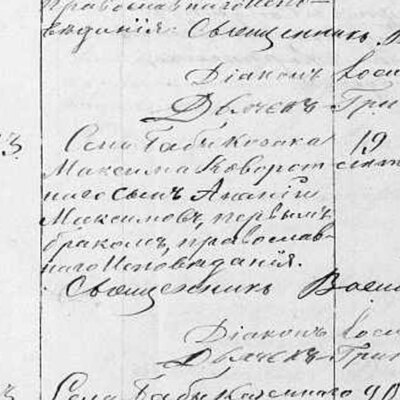 православнаго Испо-
вѣданія. Священникъ В
Діаконъ Іоси
Дьячекъ Гри
3. Села Бабы Козака 19
Максима Поворот лѣт
наго сынъ Ананій
Максимовъ, первымъ
бракомъ, православ-
наго Исповѣданія.
Священникъ Васи
Діаконъ Іоси
Дьячекъ Гри
Села Бабы 20